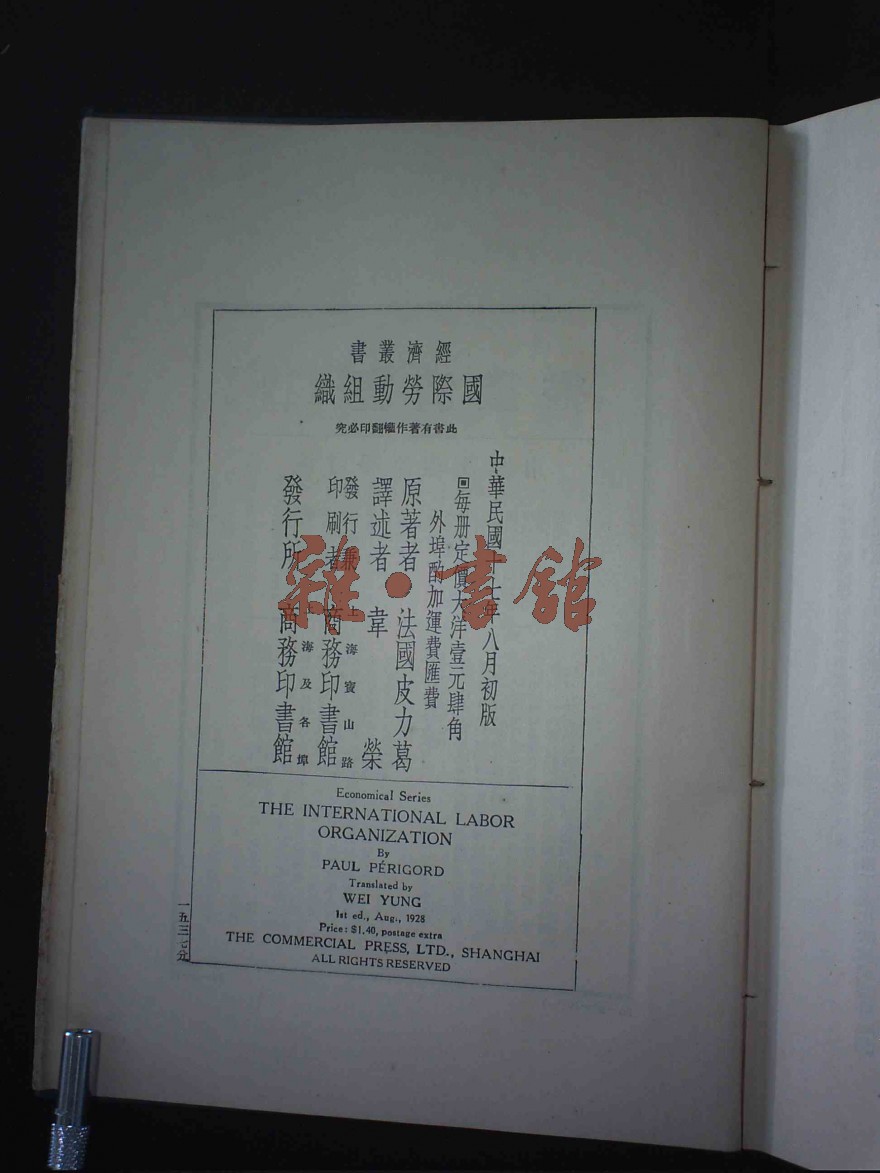 經濟叢書
國際勞動組織
此書有著作權翻印必究
中華民國十七年八月初版
每册定價大洋壹元肆角
外埠酌加運費匯費
原著者 法國皮力葛
譯述者 韋榮
發行兼印刷者 上海寶山路 商務印書館
發行所 上海及各埠 商務印書館
Economical Series
THE INTERNATIONAL LABOR
ORGANIZATION
By
PAUL PÉRIGORD
Translated by
WEI YUNG
1st ed., Aug., 1928
Price: $1.40, postage extra
THE COMMERCIAL PRESS, LTD., SHANGHAI
ALL RIGHTS RESERVED
雜·書館